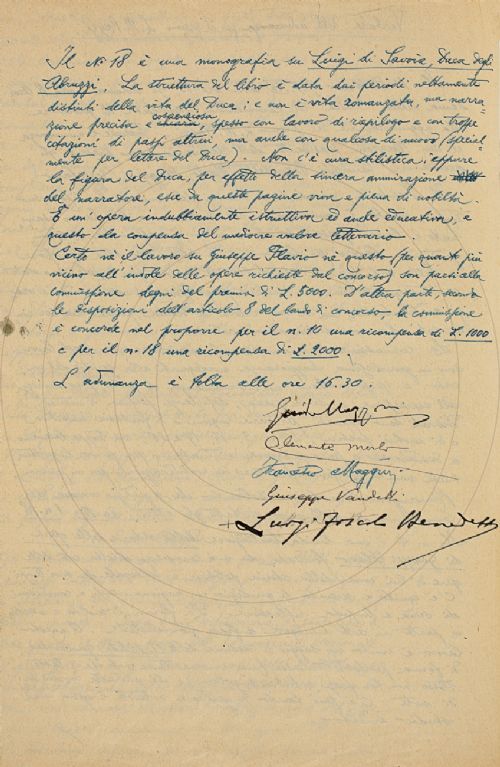 Il N° 18 è una monografia su Luigi di Savoia, Duca degli
Abruzzi. La struttura del libro è data dai periodi nettamente
distinti della vita del Duca; e non è vita romanzata, ma narra-
zione precisa e coscenziosa, spesso con lavoro di riepilogo e con troppe
citazioni di passi altrui, ma anche con qualcosa di nuovo (special-
mente per lettere del Duca). Non c'è cura stilistica; eppure
la figura del Duca, per effetto della sincera ammirazione
del narratore, esce da queste pagine viva e piena di nobiltà.
È un'opera indubbiamente istruttiva ed anche educativa, e
questo la compensa del mediocre valore letterario.
Certo nè il lavoro su Giuseppe Flavio nè questo (per quanto più
vicino all'indole delle opere richieste dal concorso) son parsi alla
commissione degni del premio di L. 5000. D'altra parte, secondo
le disposizioni dell'articolo 8 del bando di concorso, la commissione
è concorde nel proporre per il n. 10 una ricompensa di L. 1000
e per il n. 18 una ricompensa di L. 2000.
L'adunanza è tolta alle ore 16.30.
Guido Mazzoni
Clemente Merlo
Francesco Maggini
Giuseppe Vandelli
Luigi Foscolo Benedetto